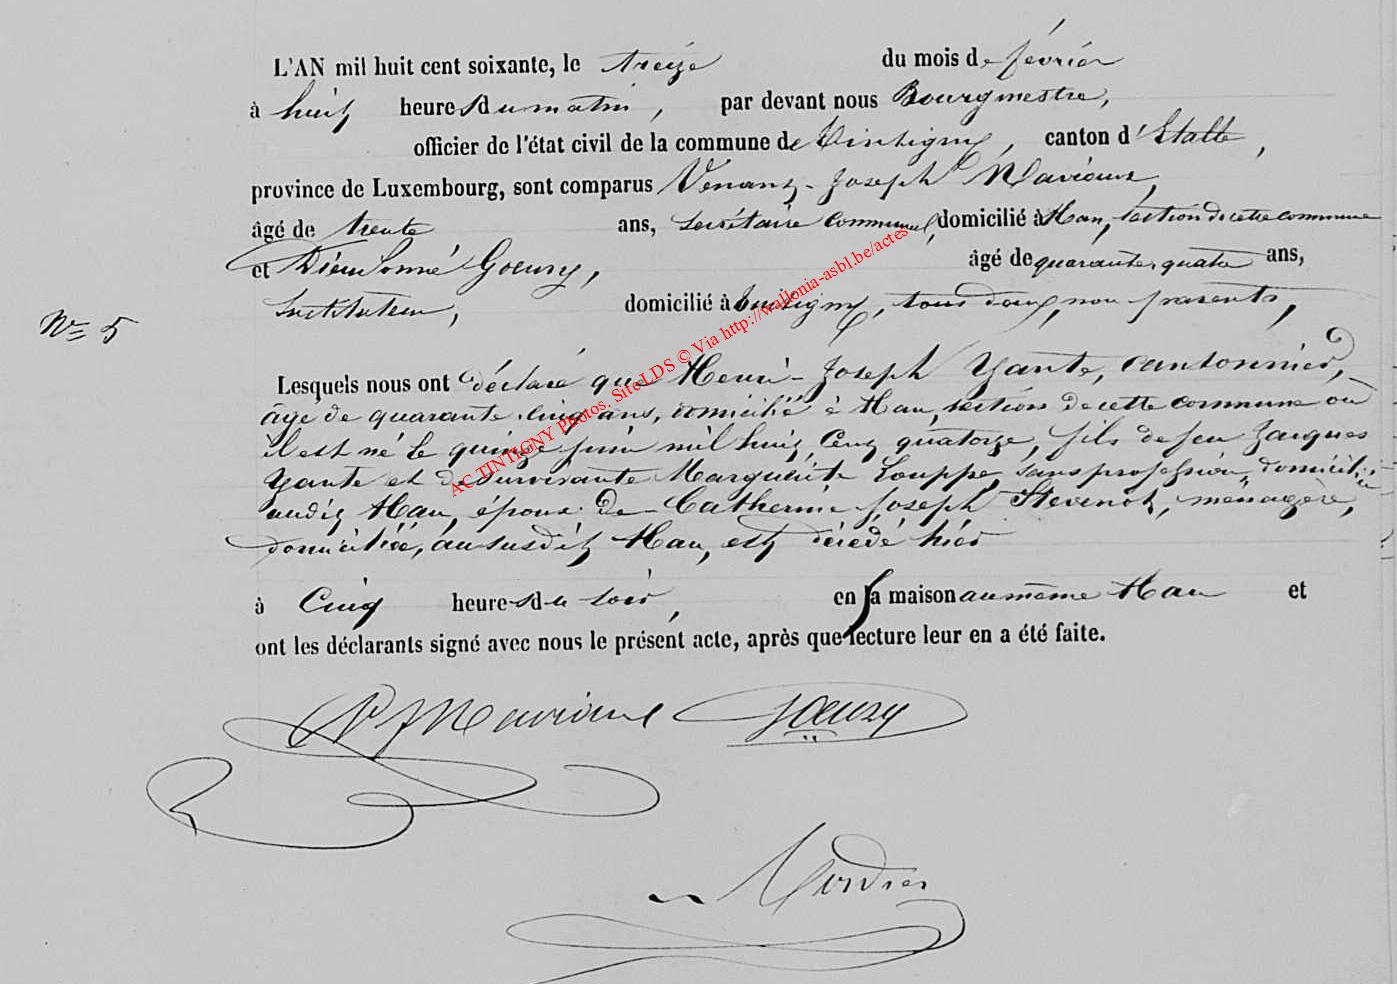 L'AN mil huit cent soixante, le treize du mois de février
à huit heures du matin, par devant nous Bourgmestre,
officier de l'état civil de la commune de Tintigny, canton d'Etalle,
province de Luxembourg, sont comparus Venant-Joseph Maviaux,
âgé de trente ans, secrétaire communal, domicilié à Han, section de cette commune
et Dieudonné Goeury, âgé de quarante-quatre ans,
Instituteur, domicilié à Tintigny, tous deux non parents,
N° 5
Lesquels nous ont déclaré que Henri-Joseph Yante, cantonnier,
âgé de quarante-cinq ans, domicilié à Han, section de cette commune où
il est né le quinze juin mil huit cent quatorze, fils de feu Jacques
Yante et de survivante Marguerite Louppe, sans profession, domiciliée
audit Han, époux de Catherine Joseph Stevenot, ménagère,
domiciliée, au susdit Han, est décédé hier
à cinq heures du soir, en sa maison au même Han et
ont les déclarants signé avec nous le présent acte, après que lecture leur en a été faite.
VJMaviaux Goeury
AC TINTIGNY Photos. Site LDS © Via http://wallonia-asbl.be/actes